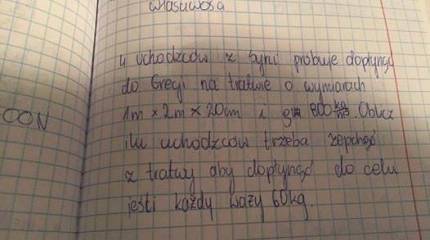 własciwosa
4 uchodzców z Syrii próbuje dopłynąć
do Grecji na tratwie o wymiarach
1m × 2m × 20cm i 800 kg/m³. Oblicz
OON
ilu uchodzców trzeba zepchąć
z tratwy aby dopłynąć do celu
jeśli każdy waży 60kg.